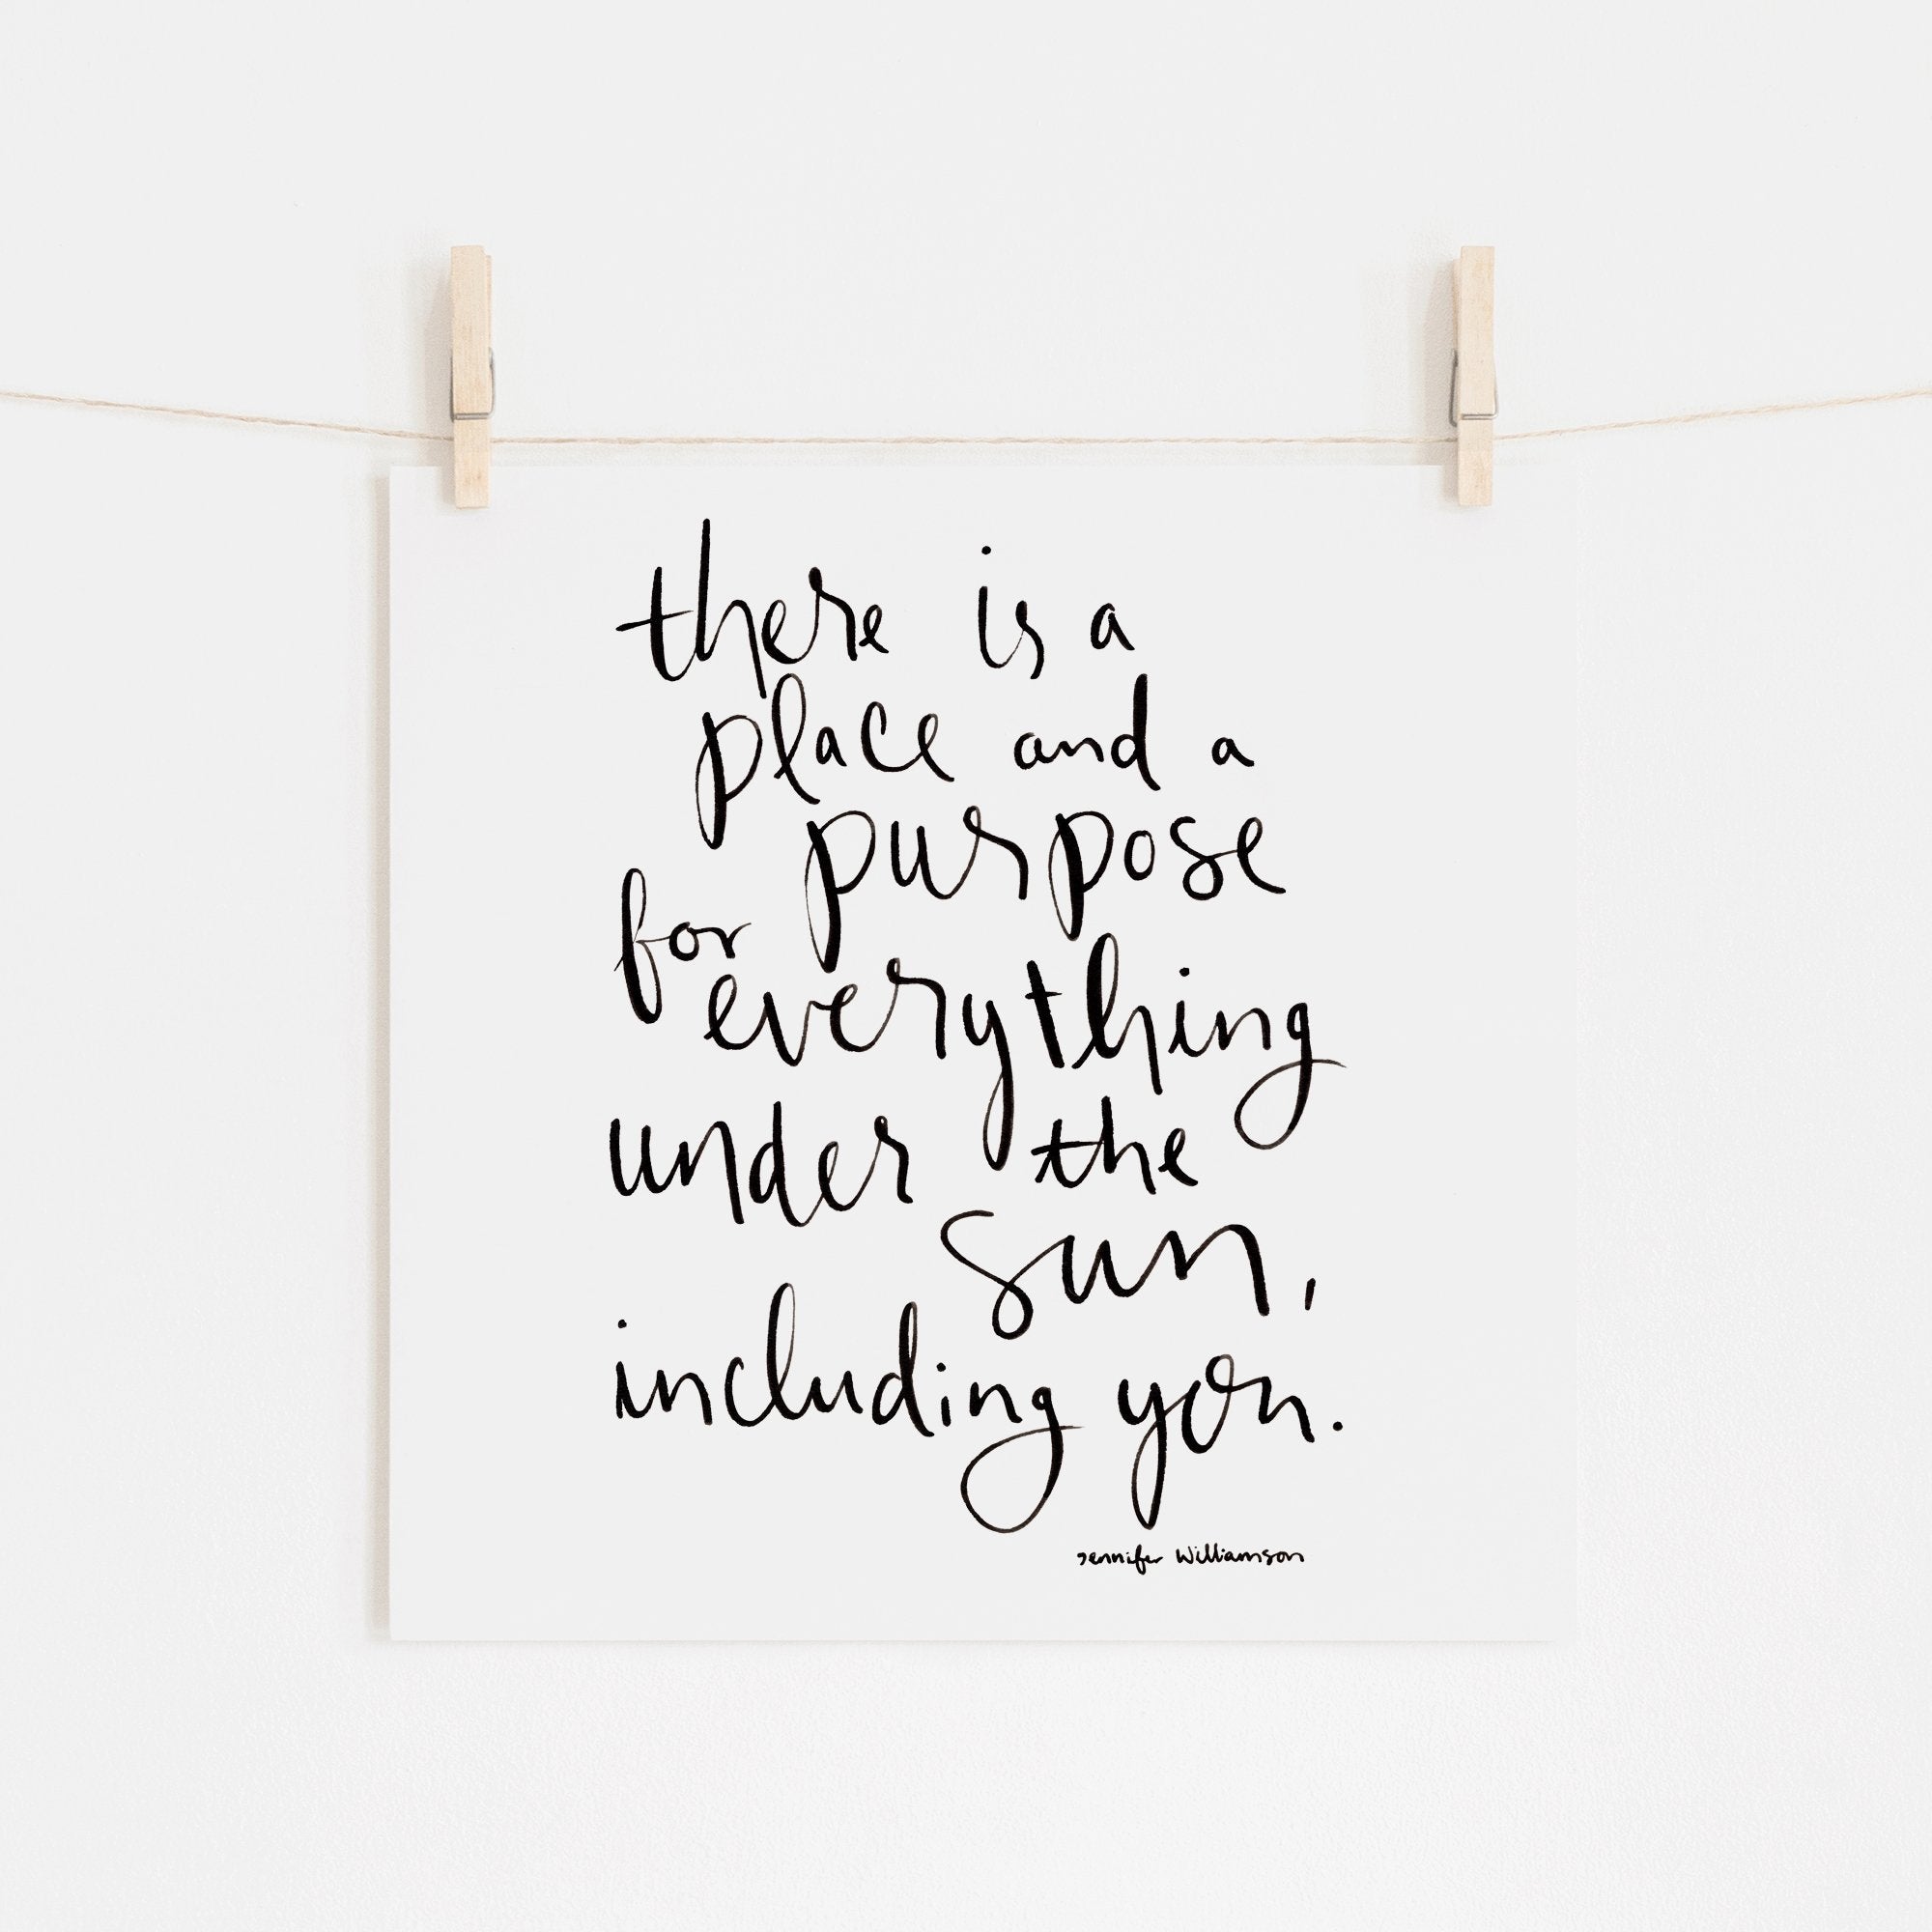 there is a
place and a
purpose
for
everything
under the
sun,
including you.
Jennifer Williamson